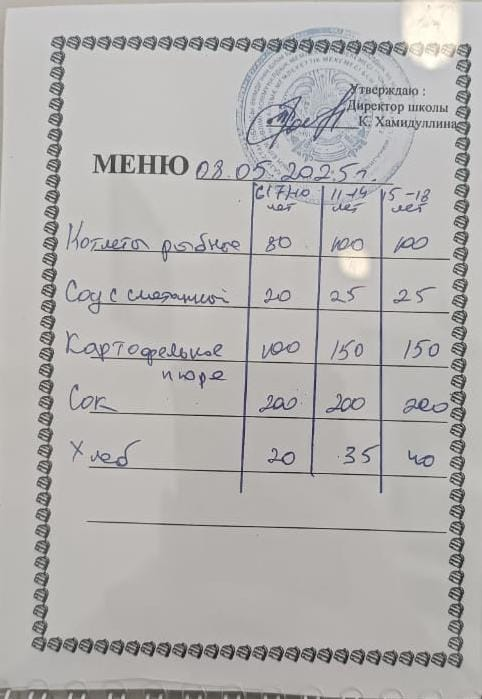 Утверждаю :
Директор школы
К. Хамидуллина
МЕНЮ 08.05.2025г.
6(7)-10 лет 11-14 лет 15-18 лет
Котлеты рыбные 80 100 100
Соус сметанный 20 25 25
Картофельное 100 150 150
пюре
Сок 200 200 200
Хлеб 20 35 40